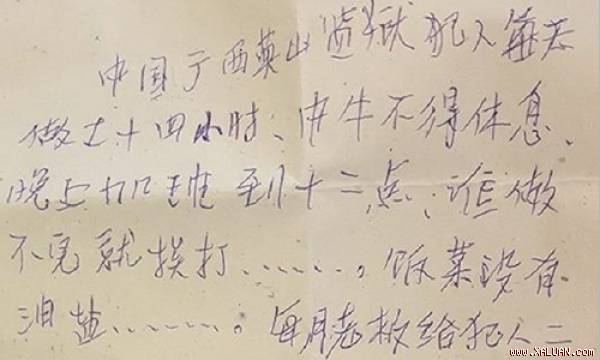 中国广西英山监狱犯人每天
做工十四小时、中午不得休息、
晚上加班到十二点、谁做
不完就挨打.......。饭菜没有
油盐.......。每月老板给犯人二
www.XALUAN.com